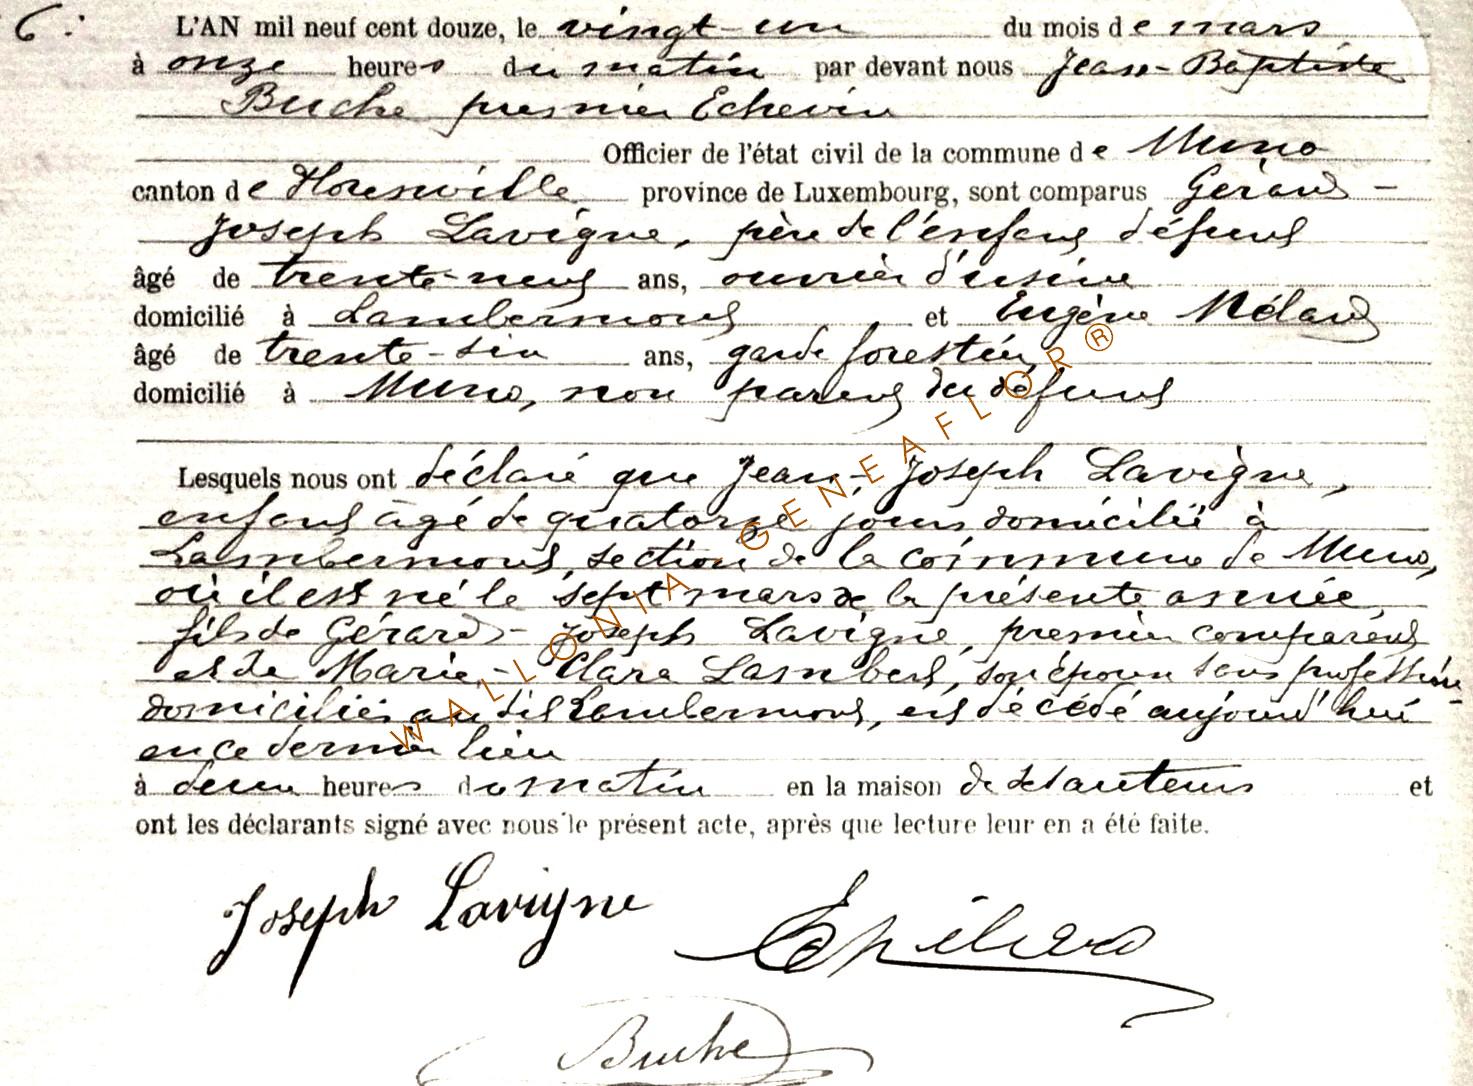 6:
L'AN mil neuf cent douze, le vingt-un du mois de mars
à onze heures du matin par devant nous Jean-Baptiste
Buche premier Echevin
Officier de l'état civil de la commune de Muno
canton de Florenville province de Luxembourg, sont comparus Gérard-
Joseph Lavigne, père de l'enfant défunt
âgé de trente-neuf ans, ouvrier d'usine
domicilié à Lambermont et Eugène Mélard
âgé de trente-six ans, garde forestier,
domicilié à Muno, non parent du défunt
Lesquels nous ont déclaré que Jean-Joseph Lavigne,
enfant âgé de quatorze jours domicilié à
Lambermont, section de la commune de Muno,
où il est né le sept mars de la présente année,
fils de Gérard-Joseph Lavigne, premier comparant
et de Marie-Clara Lambert, son épouse sans profession
domiciliés au dit Lambermont, est décédé aujourd'hui
en ce dernier lieu
à deux heures du matin en la maison de et
ont les déclarants signé avec nous le présent acte, après que lecture leur en a été faite.
Joseph Lavigne
Buche
WALLONIA GENEAFLOR®